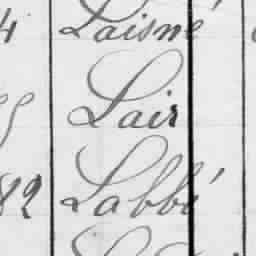 4 Laisné
Lair
82 Labbé